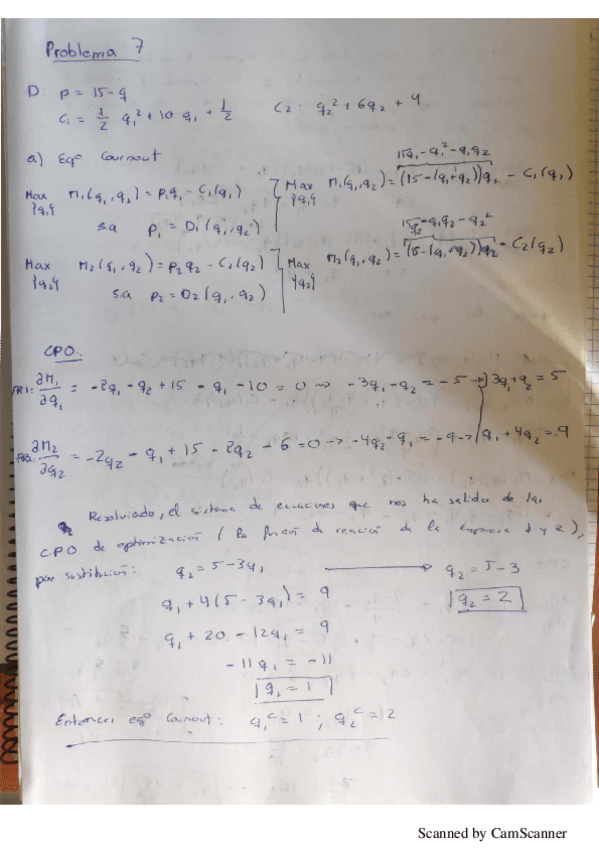 Problema 7
D: p = 15 - q
C₁ = 1/2 q₁² + 10 q₁ + 1/2    C₂: q₂² + 6q₂ + 4
a) Eqº Cournout
15q₁ - q₁² - q₁q₂
Max {q₁} Π₁(q₁, q₂) = p₁q₁ - C₁(q₁)    Max {q₁} Π₁(q₁, q₂) = (15 - (q₁+q₂))q₁ - C₁(q₁)
s.a p₁ = D₁(q₁, q₂)
15q₂ - q₁q₂ - q₂²
Max {q₂} Π₂(q₁, q₂) = p₂q₂ - C₂(q₂)    Max {q₂} Π₂(q₁, q₂) = (15 - (q₁+q₂))q₂ - C₂(q₂)
s.a p₂ = D₂(q₁, q₂)
CPO:
FR1: ∂Π₁/∂q₁ = -2q₁ - q₂ + 15 - q₁ - 10 = 0 → -3q₁ - q₂ = -5 → 3q₁ + q₂ = 5
FR2: ∂Π₂/∂q₂ = -2q₂ - q₁ + 15 - 2q₂ - 6 = 0 → -4q₂ - q₁ = -9 → q₁ + 4q₂ = 9
Resolviendo, el sistema de ecuaciones que nos ha salido de las
CPO de optimización (la función de reacción de la empresa 1 y 2),
por sustitución: q₂ = 5 - 3q₁ → q₂ = 5 - 3
q₁ + 4(5 - 3q₁) = 9    q₂ = 2
q₁ + 20 - 12q₁ = 9
-11q₁ = -11
q₁ = 1
Entonces eqº Cournout: q₁ᶜ = 1 ; q₂ᶜ = 2
Scanned by CamScanner